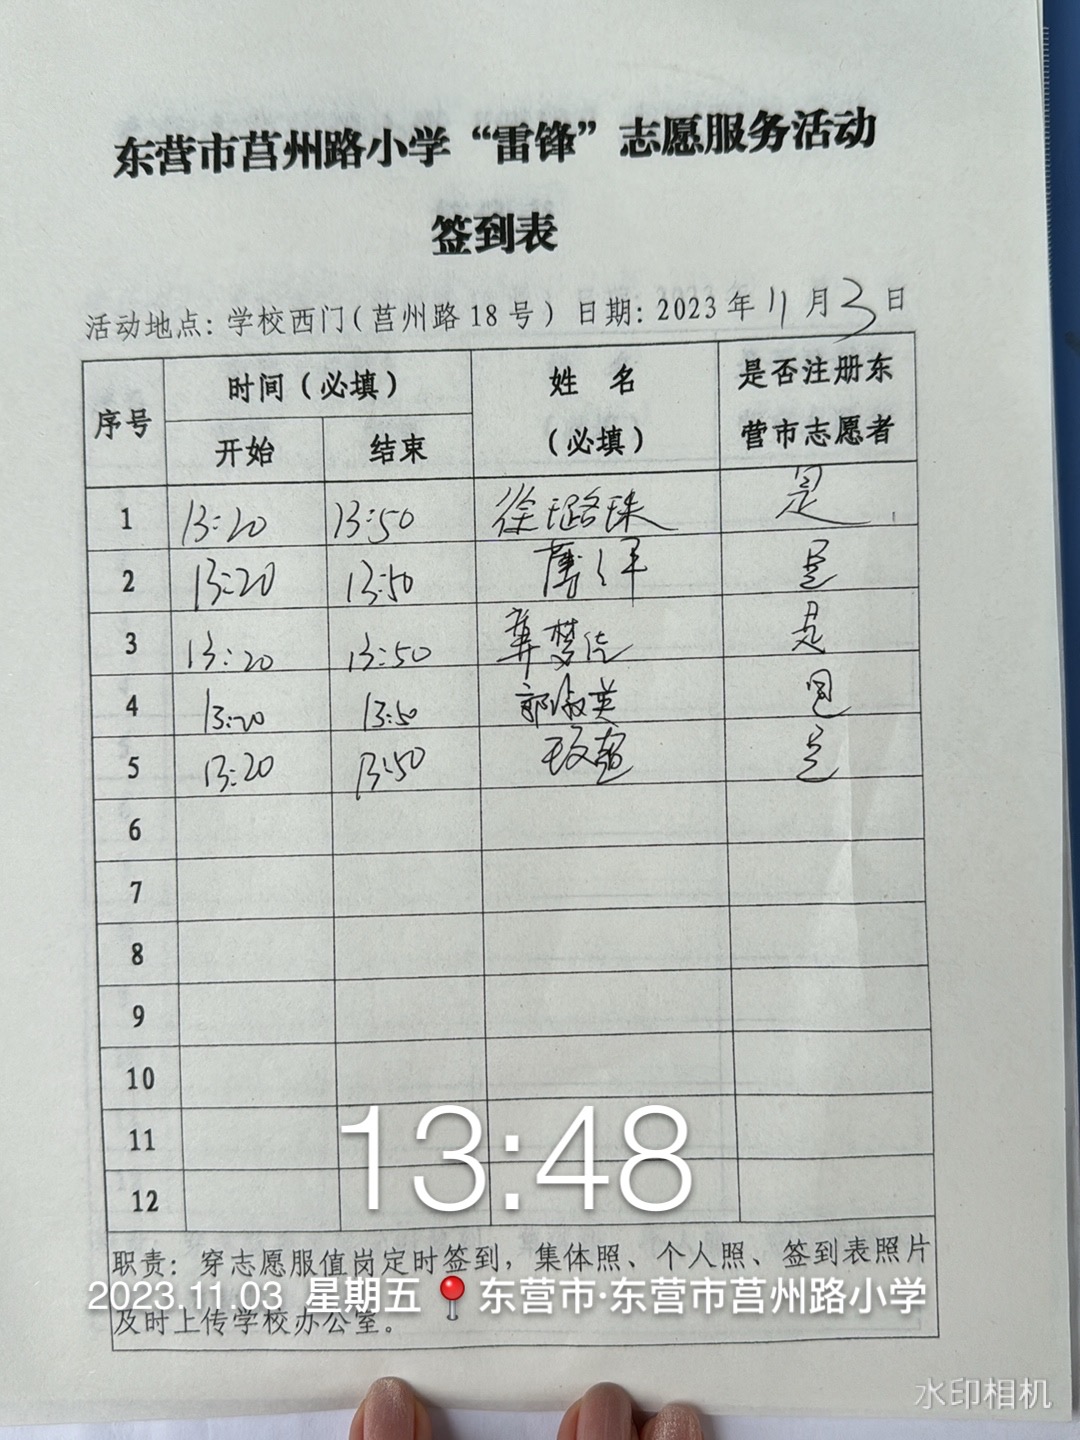 东营市莒州路小学“雷锋”志愿服务活动
签到表
活动地点：学校西门（莒州路18号）日期：2023年11月3日
序号 时间（必填） 姓 名（必填） 是否注册东营市志愿者
开始 结束
1 13:20 13:50 徐璐珠 是
2 13:20 13:50 是
3 13:20 13:50 龚梦佳 是
4 13:20 13:50 郭淑英 是
5 13:20 13:50 是
6
7
8
9
10
11
12
13:48
职责：穿志愿服值岗定时签到，集体照、个人照、签到表照片
2023.11.03 星期五 东营市·东营市莒州路小学
及时上传学校办公室。
水印相机